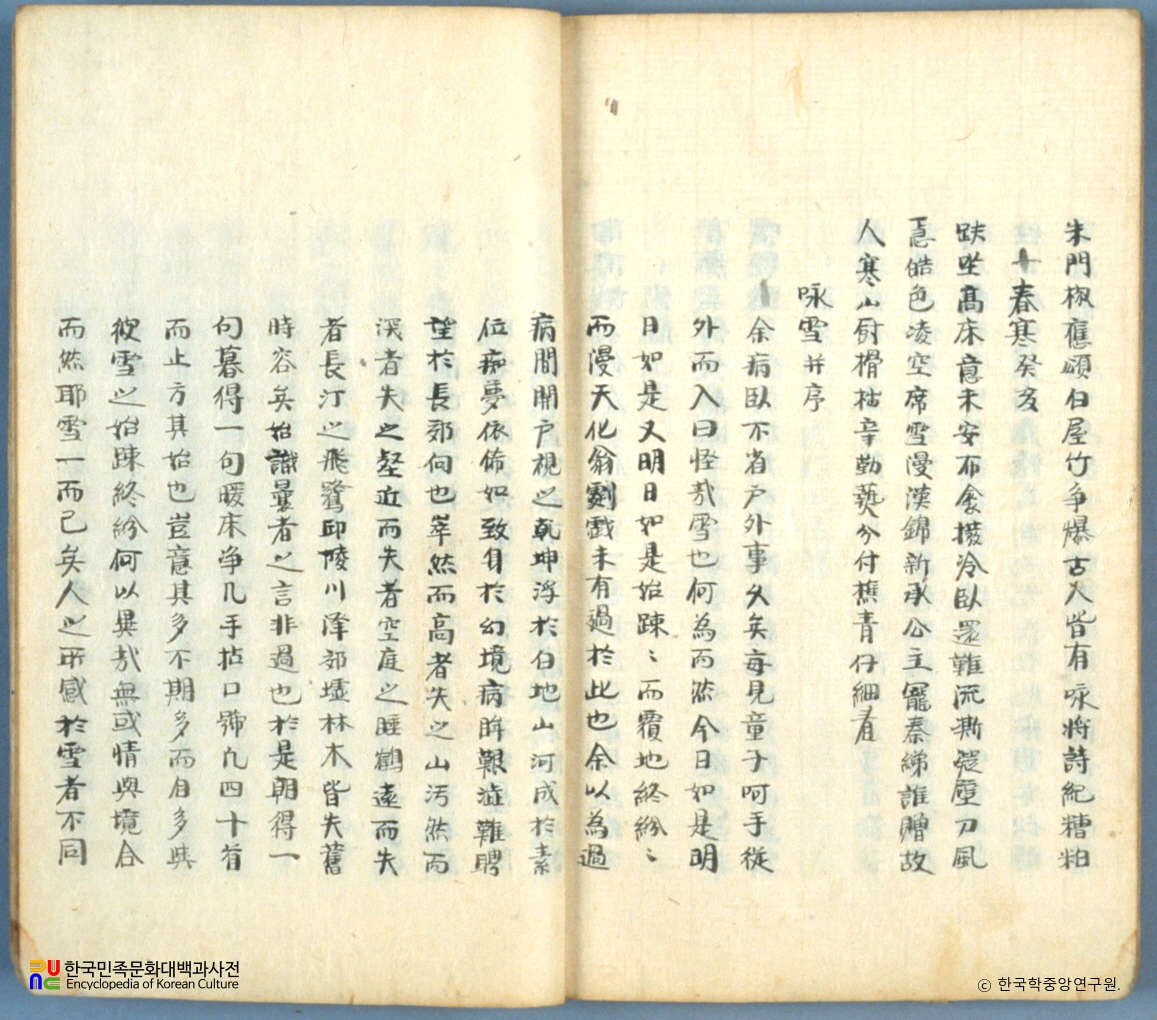 朱門椒應頌白屋竹爭爆古人皆有咏將詩紀糟粕
春寒癸亥
趺坐高床意未安布衾撥冷臥還難流澌礙壓刀風
皓色凌空席雪漫漢錦新承公主寵秦綈誰贈故
人寒山厨榾柮辛勤爇分付樵青仔細看
咏雪并序
余病臥不省戶外事久矣每見童子呵手從
外而入曰怪哉雪也何為而然今日如是明
日如是又明日如是始踈〻而覆地終紛〻
而漫天化翁劇戱未有過於此也余以為過
病間開戶視之乾坤浮於白地山河成於素
位痴夢依俙如致身於幻境病眸艱澁難聘
望於長郊何也崒然而高者失之山汚然而
深者失之壑近而失者空庭之睡鶴遠而失
者長汀之飛鷺邱陵川澤郊墟林木皆失舊
時容矣始識曩者之言非過也於是朝得一
句暮得一句暖床净几手拈口號凢四十首
而止方其始也豈意其多不期多而自多與
彼雪之始踈終紛何以異哉無或情與境合
而然耶雪一而已矣人之所感於雪者不同
한국민족문화대백과사전
Encyclopedia of Korean Culture
ⓒ 한국학중앙연구원.